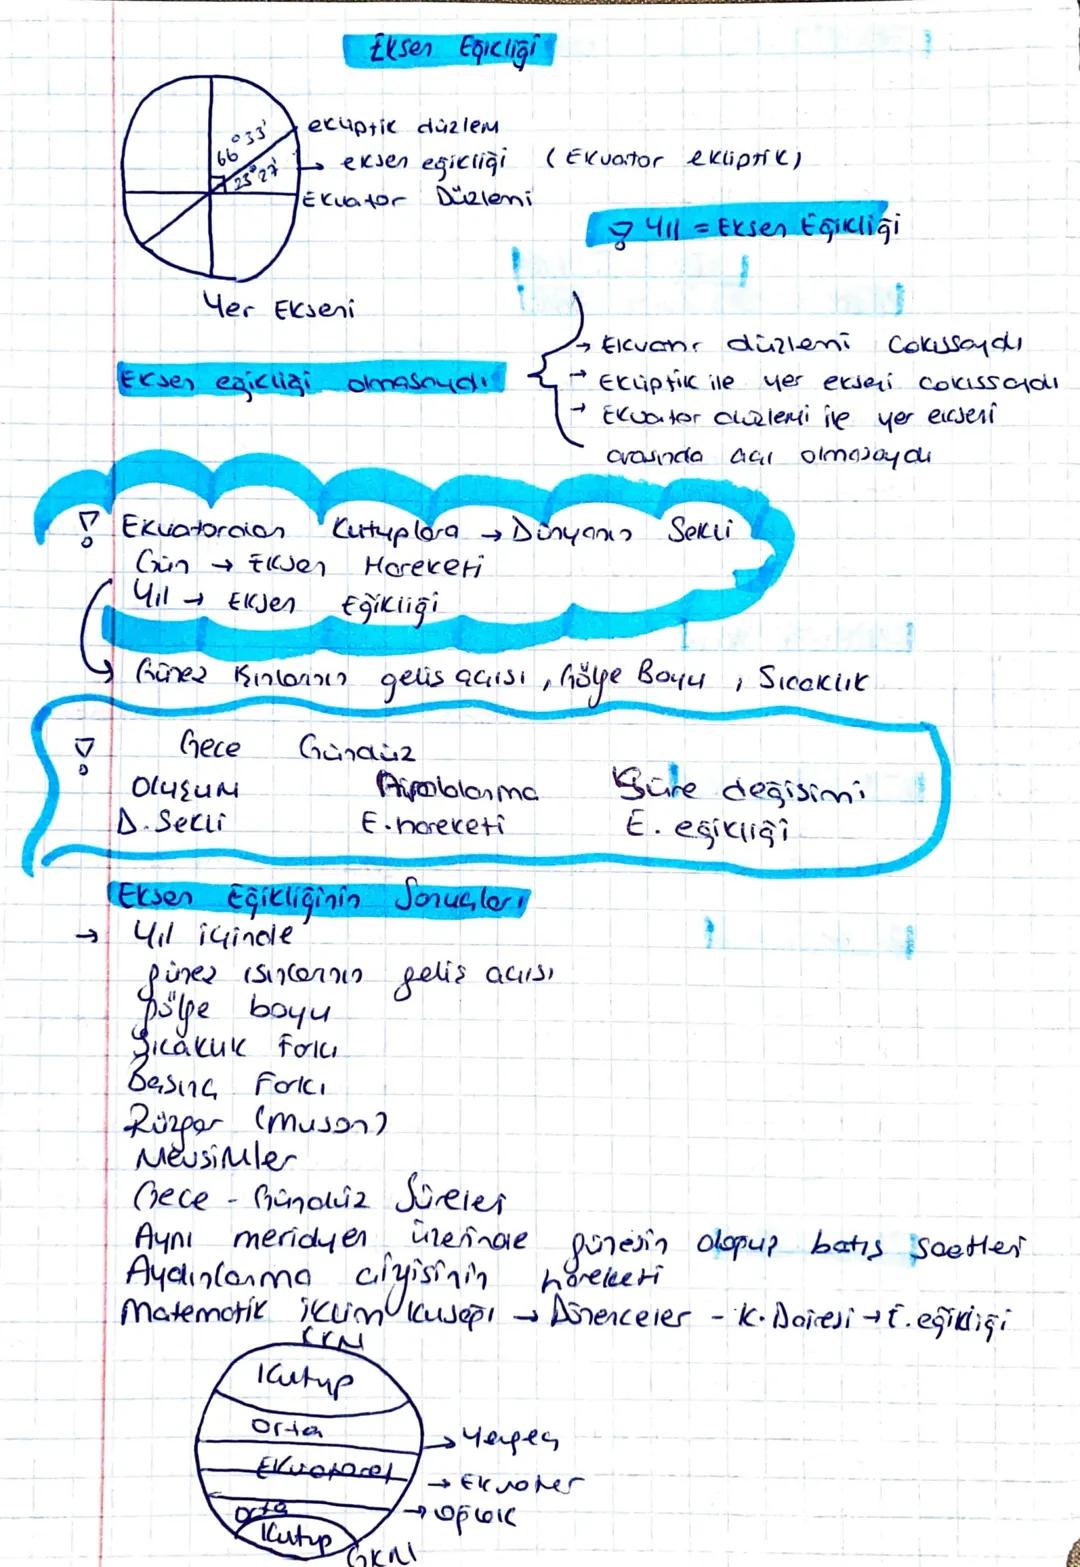 Eksen Eğikliği
ekliptik düzlem
66°33'
eksen eğikliği (Ekvator ekliptik)
23°27'
Ekvator Düzlemi
Yıl = Eksen Eğikliği
Yer Ekseni
→ Ekvator düzlemi çakışsaydı
Eksen eğikliği olmasaydı
→ Ekliptik ile yer ekseni çakışsaydı
→ Ekvator düzlemi ile yer ekseni
arasında açı olmasaydı
! Ekvatordan Kutuplara → Dünyanın Şekli
Gün → Eksen Hareketi
Yıl → Eksen Eğikliği
Güneş Işınlarının geliş açısı, Gölge Boyu, Sıcaklık
! Gece Gündüz
Oluşum Süre değişimi
D. Şekli E. hareketi E. eğikliği
Eksen Eğikliğinin Sonuçları
→ Yıl içinde
güneş ışınlarının geliş açısı
gölge boyu
Sıcaklık Farkı
Basınç Farkı
Rüzgar (Muson)
Mevsimler
Gece - Gündüz Süreleri
Aynı meridyen üzerinde güneşin doğup batış saatleri
Aydınlanma çizgisinin hareketi
Matematik iklim kuşağı → Dönenceler - K. Dairesi → E. eğikliği
KKN
Kutup
Orta
→ Yengeç
Ekvatoral
→ Ekvator
→ Oğlak
Orta
Kutup
GKN